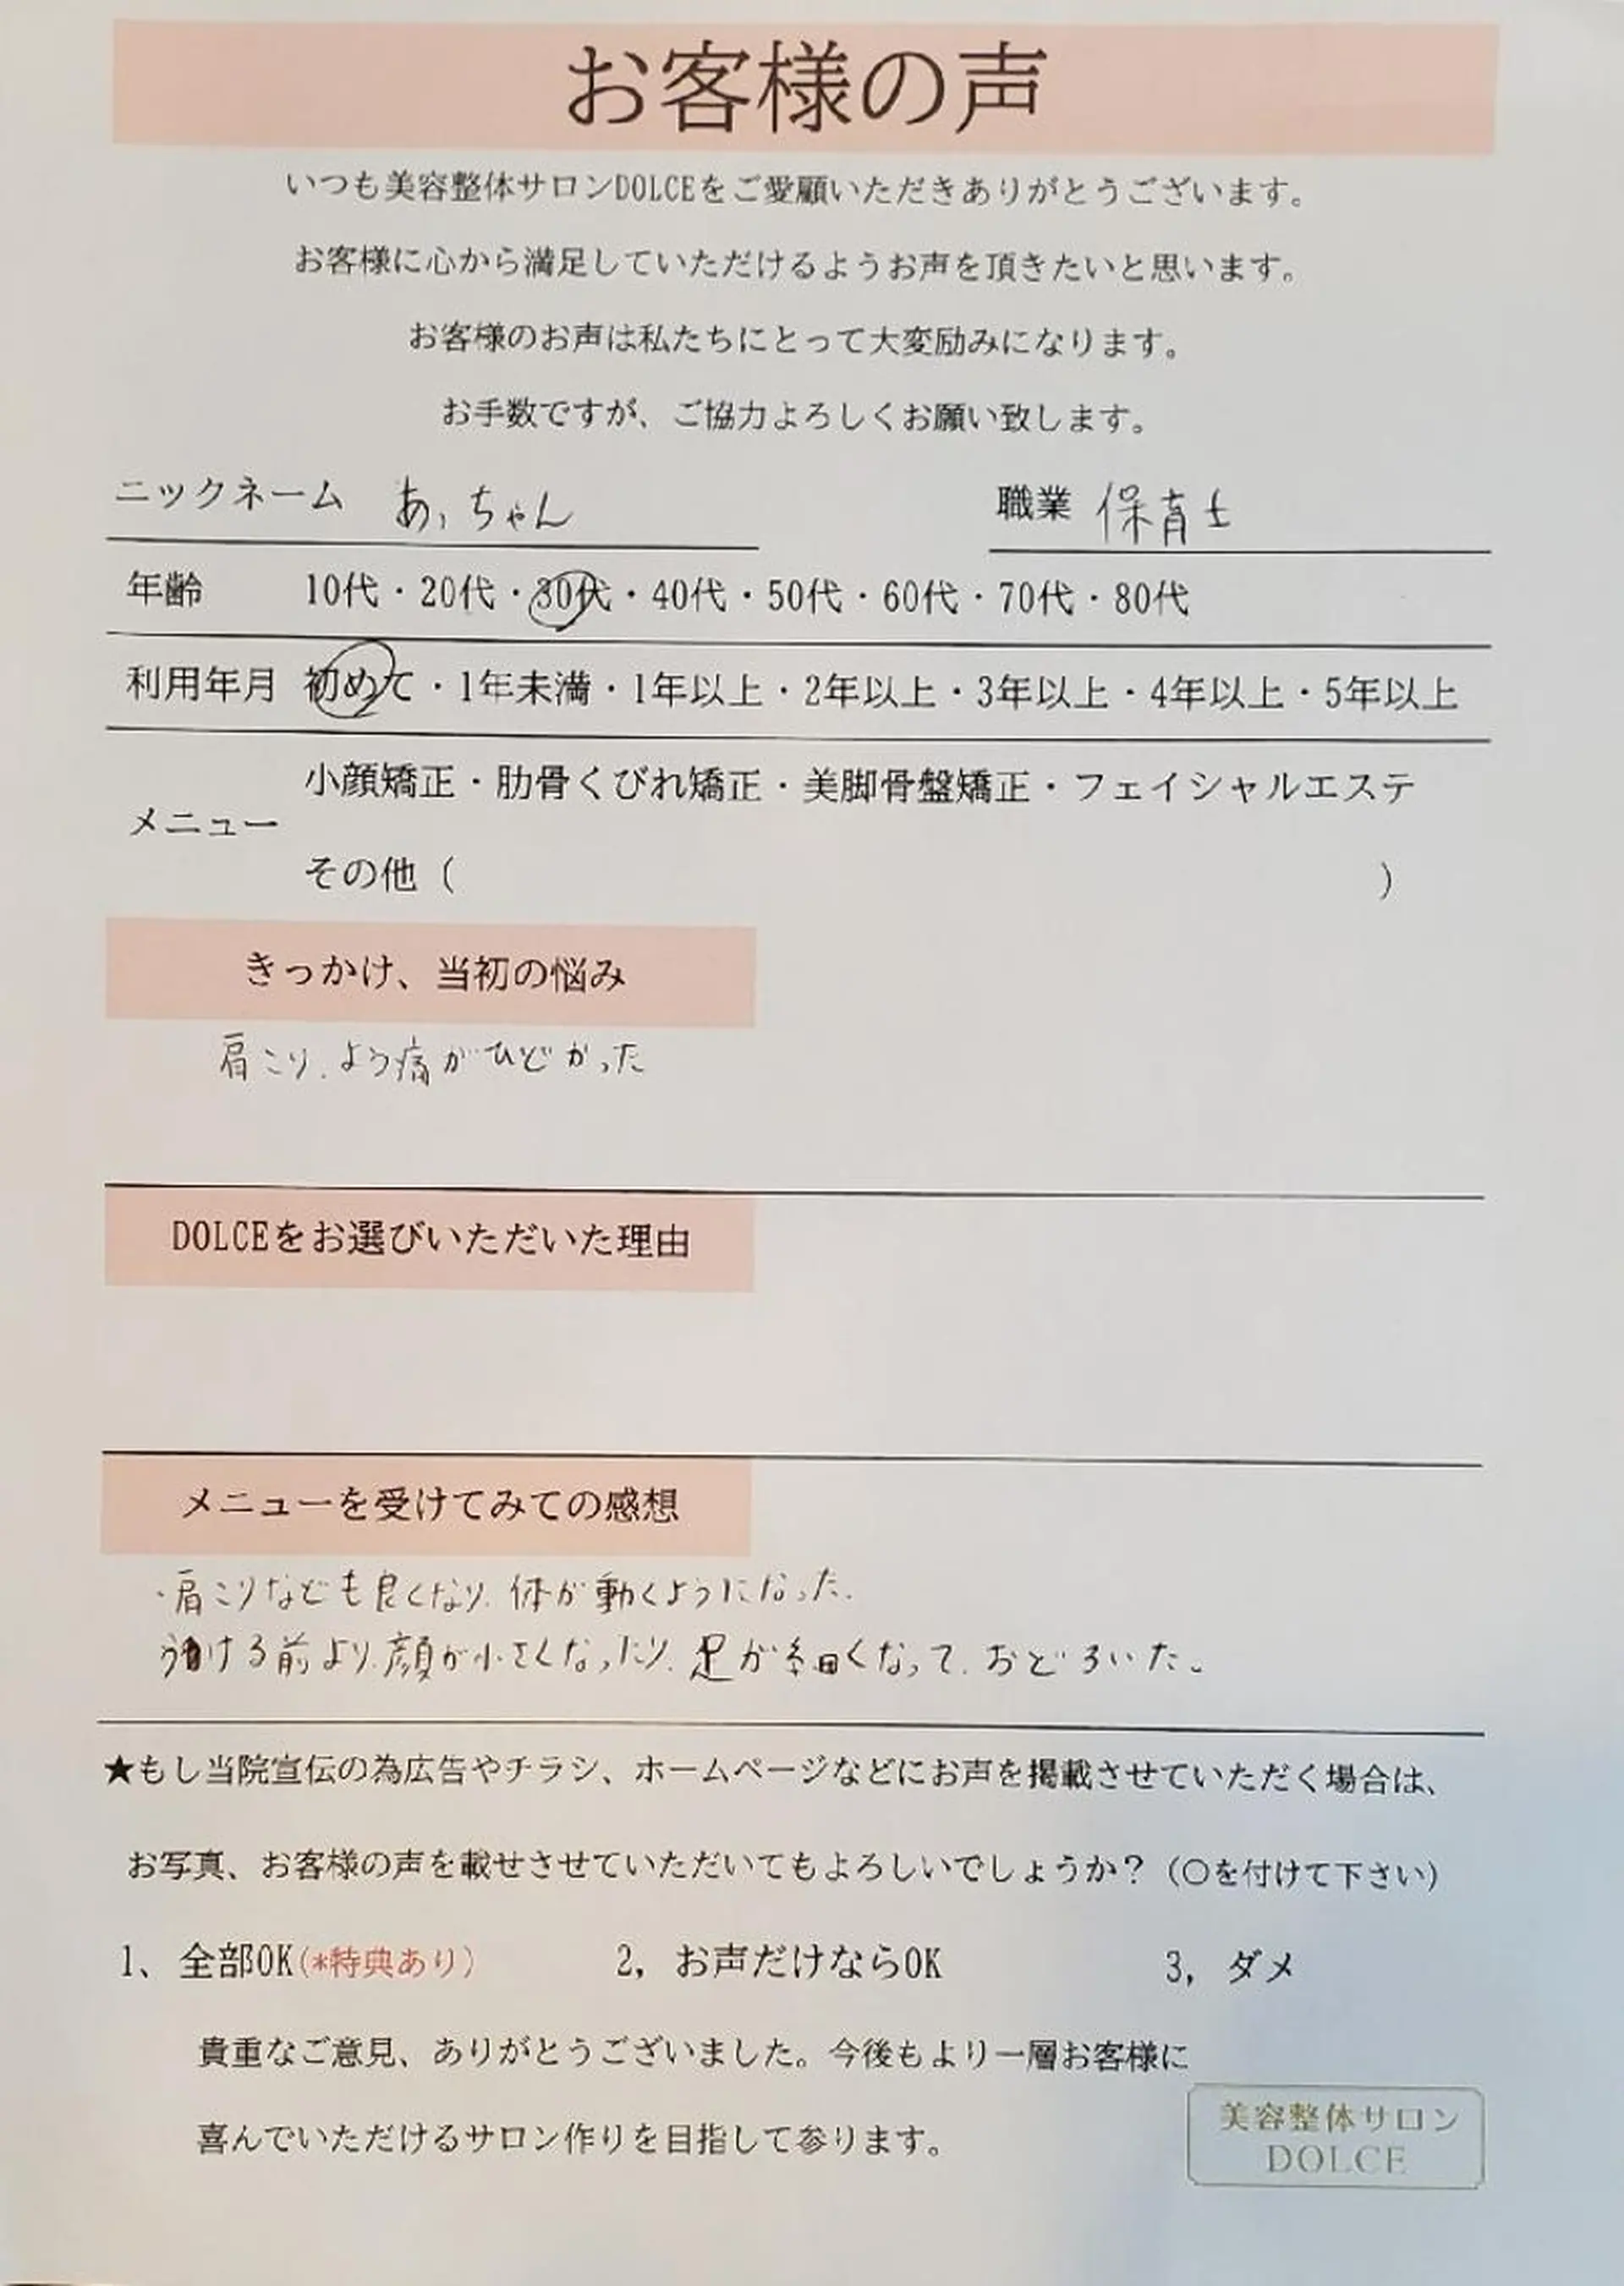 お客様の声
いつも美容整体サロンDOLCEをご愛顧いただきありがとうございます。
お客様に心から満足していただけるようお声を頂きたいと思います。
お客様のお声は私たちにとって大変励みになります。
お手数ですが、ご協力よろしくお願い致します。
ニックネーム あっちゃん 職業 保育士
年齢 10代・20代・30代・40代・50代・60代・70代・80代
利用年月 初めて・1年未満・1年以上・2年以上・3年以上・4年以上・5年以上
小顔矯正・肋骨くびれ矯正・美脚骨盤矯正・フェイシャルエステ
メニュー
その他（ ）
きっかけ、当初の悩み
肩こり、よう痛がひどかった
DOLCEをお選びいただいた理由
メニューを受けてみての感想
・肩こりなども良くなり、体が動くようになった。
うける前より、顔が小さくなったり、足が細くなって、おどろいた。
★もし当院宣伝の為広告やチラシ、ホームページなどにお声を掲載させていただく場合は、
お写真、お客様の声を載せさせていただいてもよろしいでしょうか？（○を付けて下さい）
1、全部OK(*特典あり） 2，お声だけならOK 3，ダメ
貴重なご意見、ありがとうございました。今後もより一層お客様に
喜んでいただけるサロン作りを目指して参ります。
美容整体サロン
DOLCE